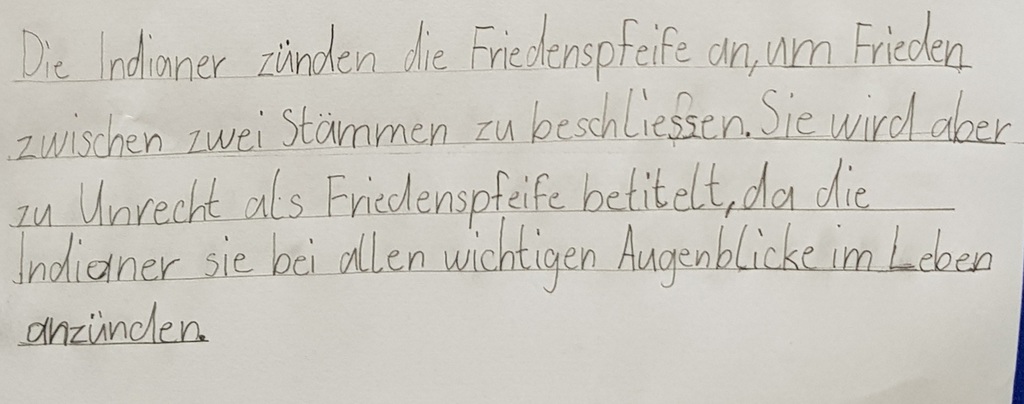 Die Indianer zünden die Friedenspfeife an, um Frieden
zwischen zwei Stämmen zu beschliessen. Sie wird aber
zu Unrecht als Friedenspfeife betitelt, da die
Indianer sie bei allen wichtigen Augenblicke im Leben
anzünden.